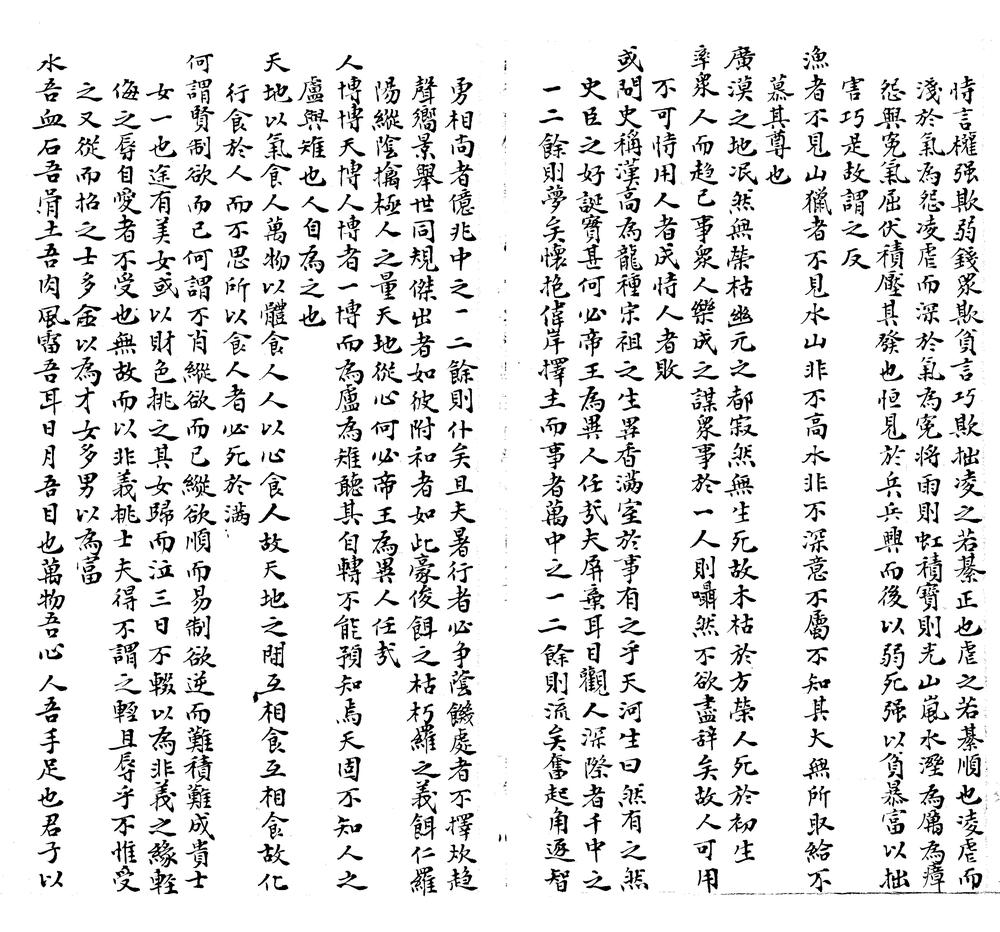 恃言權强欺弱錢眾欺負言巧欺拙凌之若綦正也虐之若綦順也凌虐而
淺於氣為怨凌虐而深於氣為寃將雨則虹積寶則光山嵐水溼為厲為瘴
怨與寃氣屈伏積壓其發也恒見於兵兵興而後以弱死强以負暴富以拙
害巧是故謂之反
漁者不見山獵者不見水山非不高水非不深意不屬不知其大無所取給不
慕其尊也
廣漠之地泯然無榮枯幽元之都寂然無生死故木枯於方榮人死於初生
率眾人而趋己事眾人樂成之謀眾事於一人則囁然不欲盡辞矣故人可用
不可恃用人者成恃人者敗
或問史稱漢高為龍種宋祖之生異香滿室於事有之乎天河生曰然有之然
史臣之好誕實甚何必帝王為異人任㢤夫屏棄耳目觀人深際者千中之
一二餘則夢矣懷抱偉岸擇主而事者萬中之一二餘則流矣奮起角逐智
勇相尚者億兆中之一二餘則什矣且夫暑行者必争蔭饑處者不擇炊趋
聲嚮景舉世同規傑出者如彼附和者如此豪俊餌之枯朽羅之義餌仁羅
陽縱陰擒極人之量天地從心何必帝王為異人任㢤
人博博天博人博者一博而為盧為雉聽其自轉不能預知焉天固不知人之
盧與雉也人自為之也
天地以氣食人萬物以體食人人以心食人故天地之間互相食互相食故化
行食於人而不思所以食人者必死於滿
何謂賢制欲而已何謂不肖縱欲而已縱欲順而易制欲逆而難積難成貴士
女一也途有美女或以財色挑之其女歸而泣三日不輟以為非義之緣輕
侮之辱自愛者不受也無故而以非義挑士夫得不謂之輕且辱乎不惟受
之又從而招之士多金以為才女多男以為富
水吾血石吾骨土吾肉風雷吾耳日月吾目也萬物吾心人吾手足也君子以